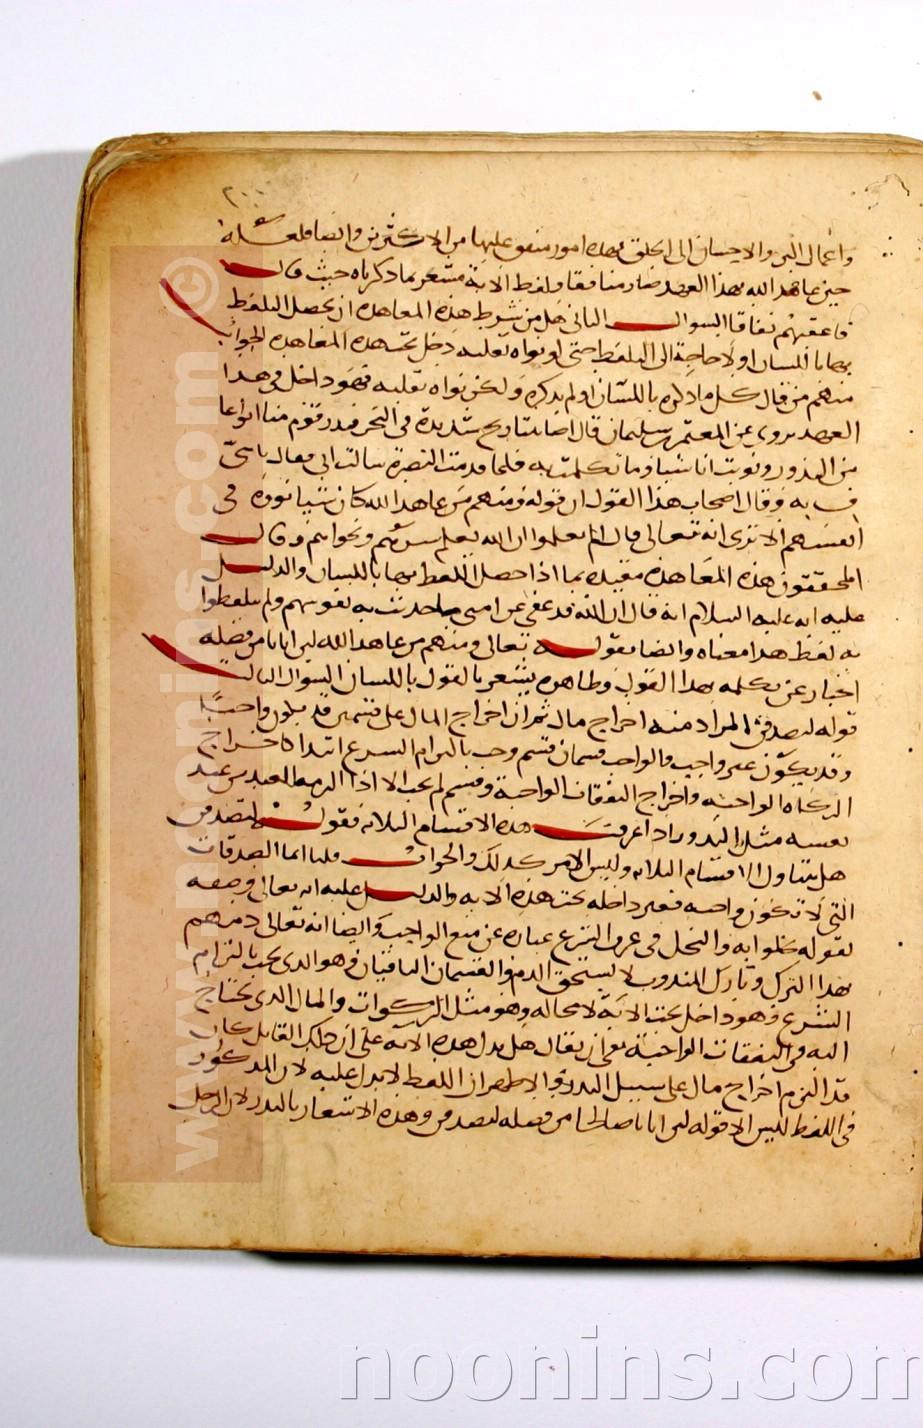 واعمال البر والاحسان الى الخلق فهذه امور متفق عليها من الاكثرين وايضا فلعله
حين عاهد الله بهذا العهد صار منافقا ولفظ الاية مشعر بما ذكرناه حيث قال
فاعقبهم نفاقا السوال الثانى هل من شرط هذه المعاهدة ان يحصل التلفظ
بها باللسان او لا حاجة الى التلفظ حتى لو نواه بقلبه دخل تحت هذه المعاهدة الجواب
منهم من قال كل ما ذكره باللسان او لم يذكره ولكن نواه بقلبه فهو داخل فى هذا
العهد يروى عن المعتمر بن سليمان قال اصابتنا ريح شديدة فى البحر فنذر قوم منا انواعا
من النذور ونويت انا شيا وما تكلمت به فلما قدمت البصرة سالت ابى فقال يا بنى
ف به وقال اصحاب هذا القول ان قوله ومنهم من عاهد الله كان شيا نووه فى
انفسهم الا ترى انه تعالى قال الم يعلموا ان الله يعلم سرهم ونجواهم وقال
المحققون هذه المعاهدة مقيدة بما اذا حصل التلفظ بها باللسان والدليل
عليه انه عليه السلام انه قال ان الله قد عفى عن امتى ما حدثت به نفوسهم ولم يتلفظوا
به لفظ هذا معناه وايضا فقوله تعالى ومنهم من عاهد الله لين اتانا من فضله
اخبار عن تكلمه بهذا القول وظاهره يشعر بالقول باللسان السوال الثالث
قوله لنصدقن المراد منه اخراج مال ثم ان اخراج المال على قسمين قد يكون واجبا
وقد يكون غير واجب والواجب قسمان قسم وجب بالزام الشرع ابتداء كاخراج
الزكاة الواجبة واخراج النفقات الواجبة وقسم لم يجب الا اذا التزمه العبد من عند
نفسه مثل النذور اذا عرفت هذه الاقسام الثلاثة فقوله لنصدقن
هل يتناول الاقسام الثلاثة وليس الامر كذلك والجواب قلنا اما الصدقات
التى لا تكون واجبة فغير داخلة تحت هذه الاية والدليل عليه انه تعالى وصفه
بقوله بخلوا به والبخل فى عرف الشرع عبارة عن منع الواجب وايضا انه تعالى ذمهم
بهذا الترك وتارك المندوب لا يستحق الذم والقسمان الباقيان فهو الذى يجب بالزام
الشرع فهو داخل تحت الاية لا محالة وهو مثل الزكوات والمال الذى يحتاج
اليه فى النفقات الواجبة بقى ان يقال هل يدل هذه الاية على ان ذلك القايل كان
قد التزم اخراج مال على سبيل النذر والاظهر ان اللفظ لا يدل عليه لان المذكور
فى اللفظ ليس الا قوله لين اتانا من فضله لنصدقن وهذه الاشعار بالنذر لان الرجل
www.noonins.com ©
noonins.com